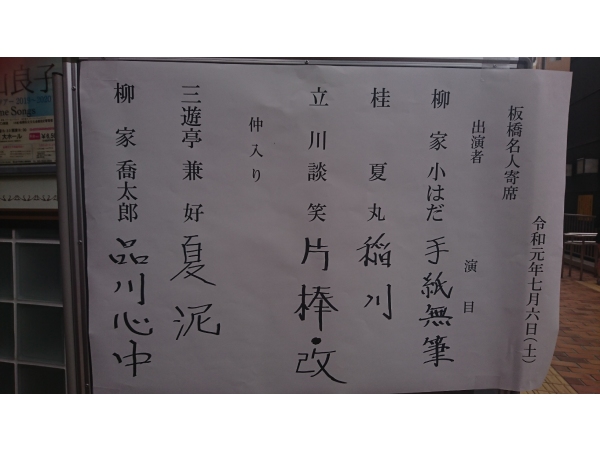 令和元年七月六日(土)
板橋名人寄席
出演者 演目
柳家小はだ 手紙無筆
桂夏丸 稲川
立川談笑 片棒・改
仲入り
三遊亭兼好 夏泥
柳家喬太郎 品川心中
良子
Songs